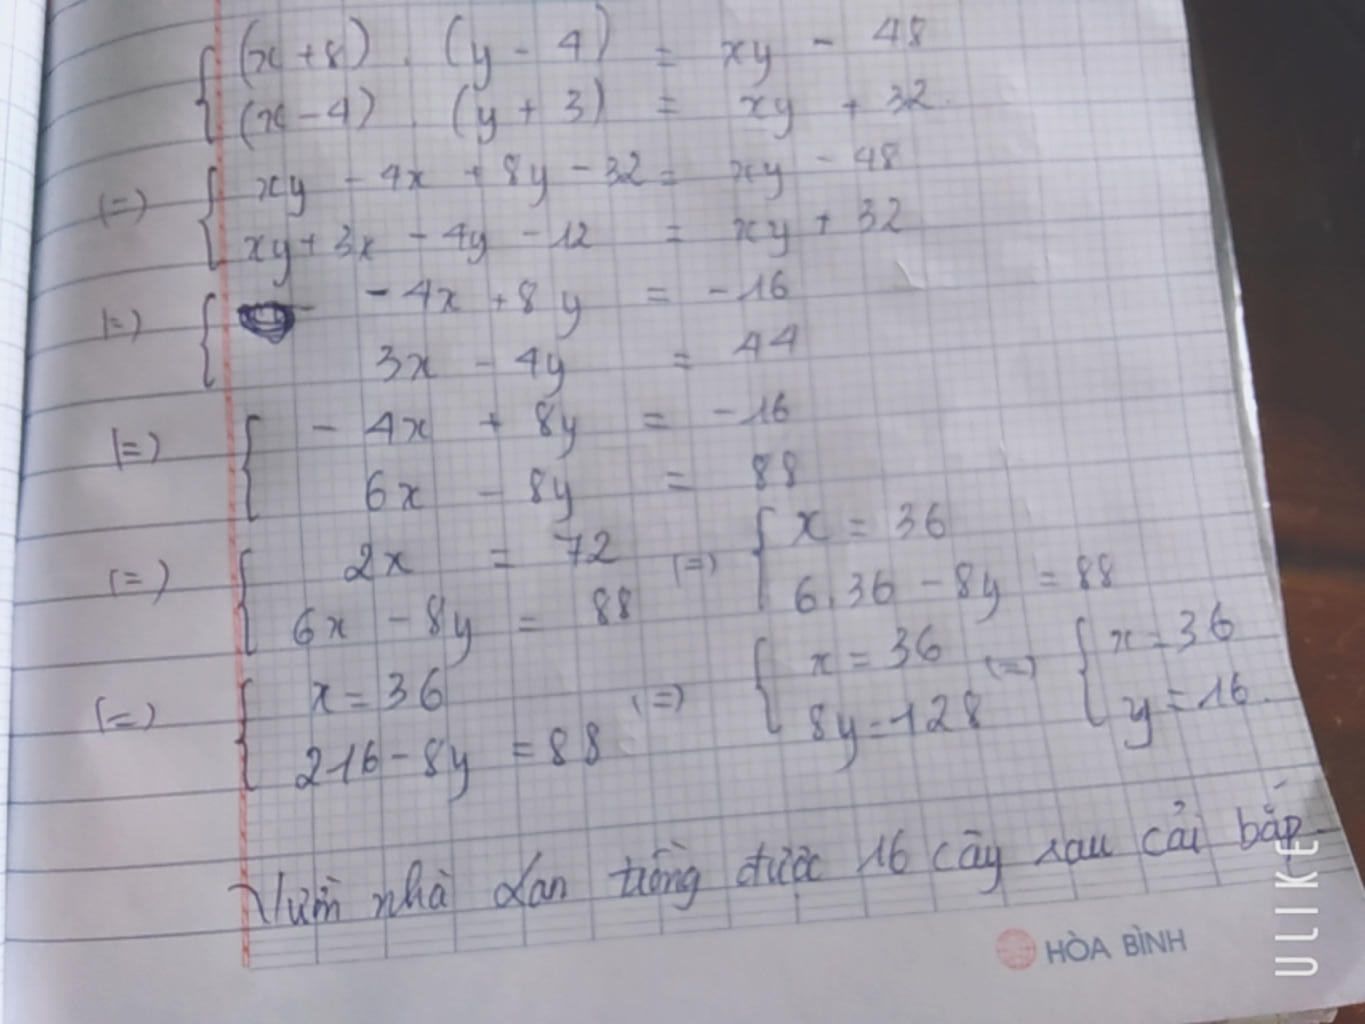 (x + 8) . (y - 4) = xy - 48
(x - 4) . (y + 3) = xy + 32
(=) xy - 4x + 8y - 32 = xy - 48
xy + 3x - 4y - 12 = xy + 32
(=) - 4x + 8y = - 16
3x - 4y = 44
(=) - 4x + 8y = - 16
6x - 8y = 88
(=) 2x = 72 (=) x = 36
6x - 8y = 88 6.36 - 8y = 88
(=) x = 36 (=) x = 36 (=) x = 36
216 - 8y = 88 8y = 128 y = 16.
Vườn nhà Lan trồng được 16 cây rau cải bắp
HÒA BÌNH
ULIKE